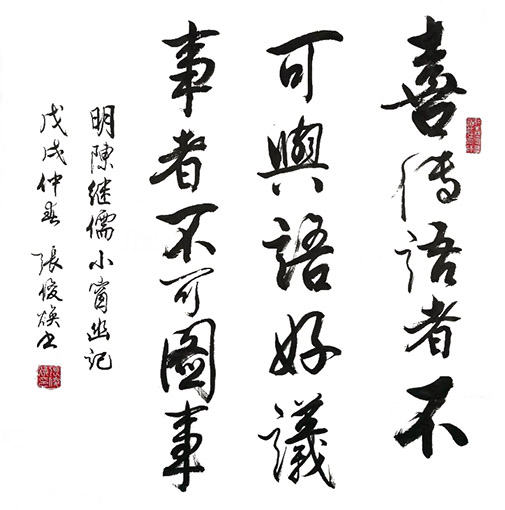 喜傳語者不
可與語好議
事者不可圖事
明陳继儒小窗幽记
戊戌仲春 張俊煥书